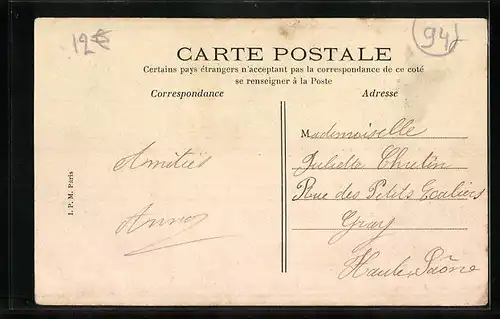 12€
94
CARTE POSTALE
Certains pays étrangers n'acceptant pas la correspondance de ce coté
se renseigner à la Poste
Correspondance
Adresse
Mademoiselle
Juliette Chutin
Rue des Petits Ecaliers
Gray
Haute Saône
Amitiés
Anna
I. P. M. Paris